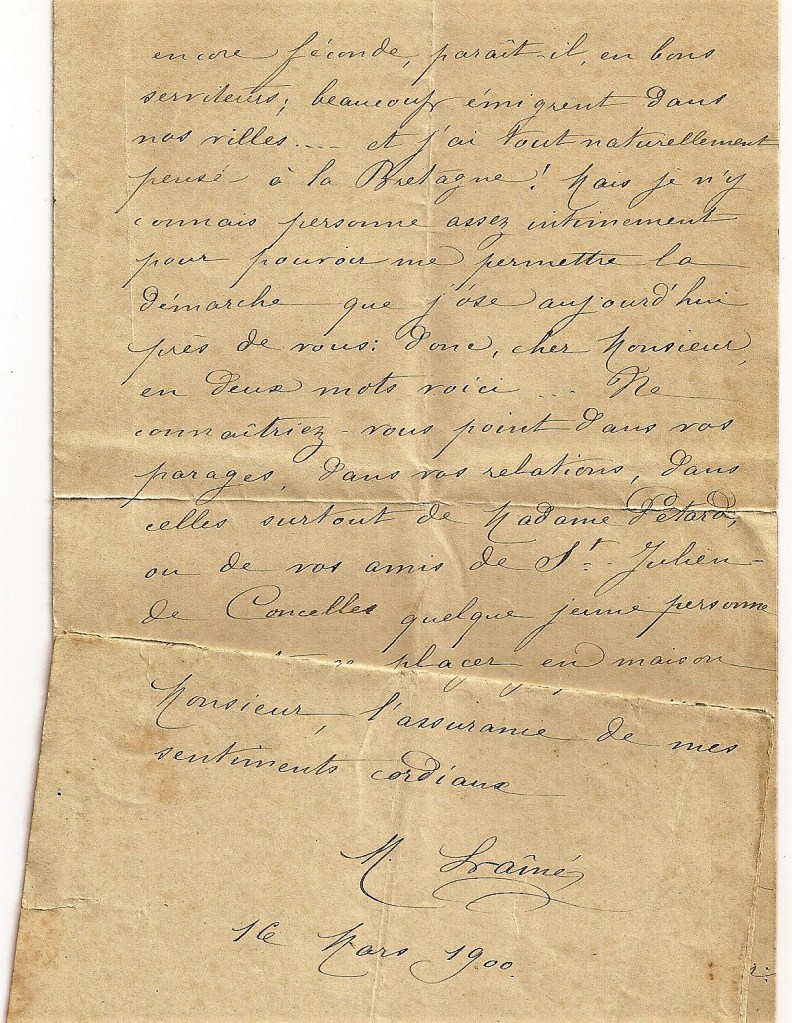 encore féconde, paraît-il, en bons
serviteurs; beaucoup émigrent dans
nos villes.... et j'ai tout naturellement
pensé à la Bretagne! Mais je n'y
connais personne assez intimement
pour pouvoir me permettre la
démarche que j'ose aujourd'hui
près de vous: donc, cher Monsieur,
en deux mots voici ... Ne
connaîtriez-vous point dans vos
parages, dans vos relations, dans
celles surtout de Madame Pétard,
ou de vos amis de St. Julien-
de Concelles quelque jeune personne
placer en maison
Monsieur, l'assurance de mes
sentiments cordiaux
M.
16 Mars 1900.